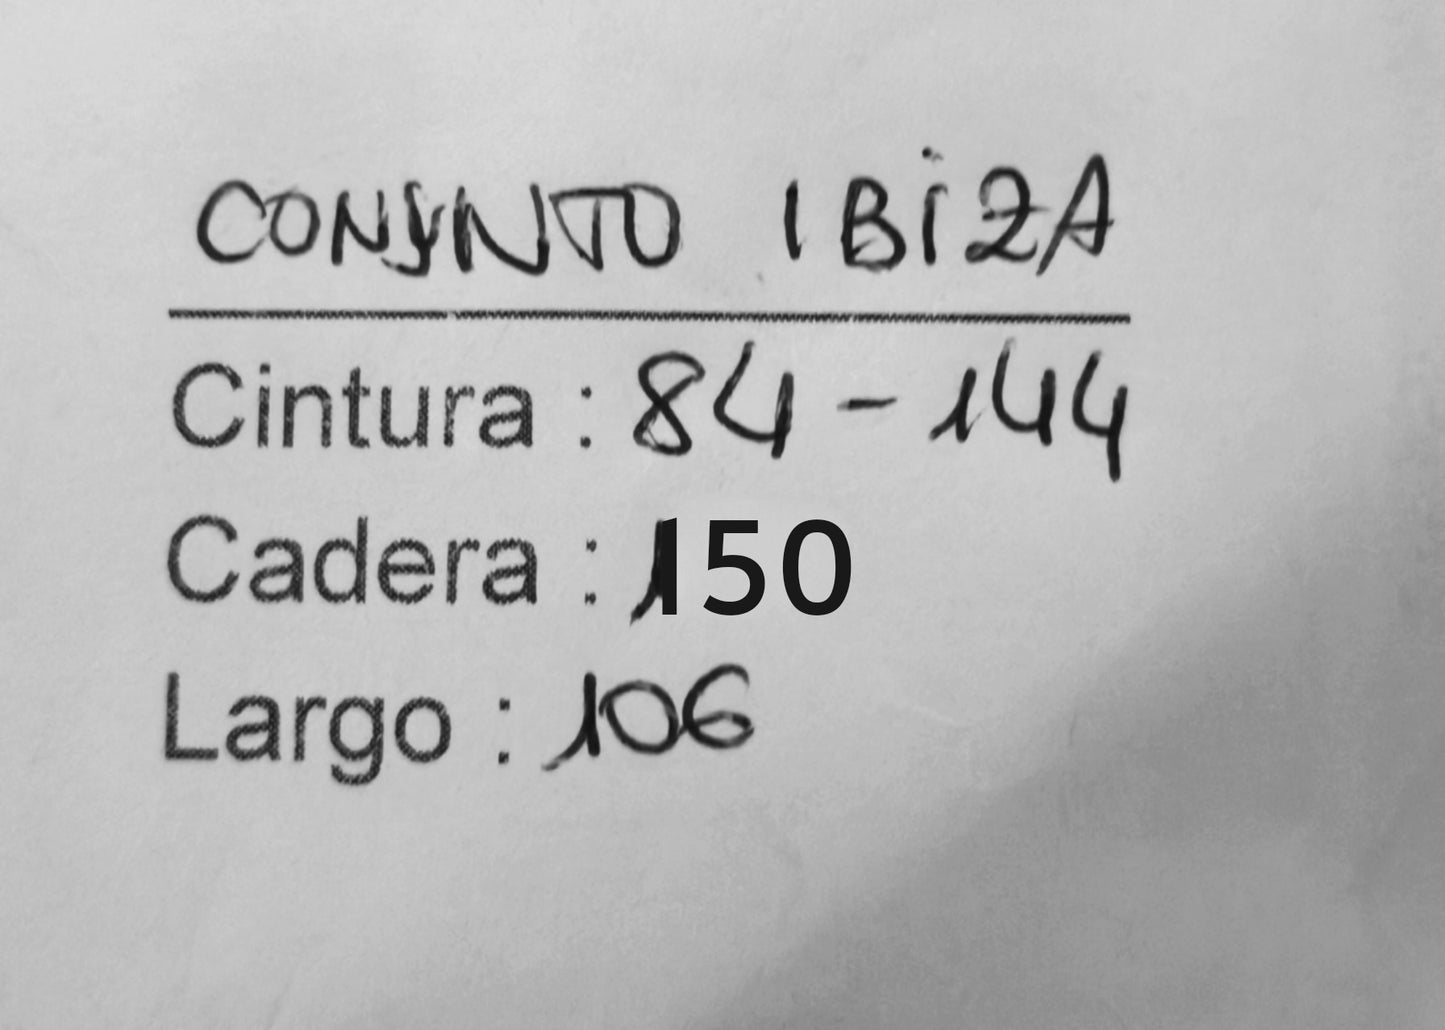 CONJUNTO IBiZA
Cintura : 84 - 144
Cadera : 150
Largo : 106